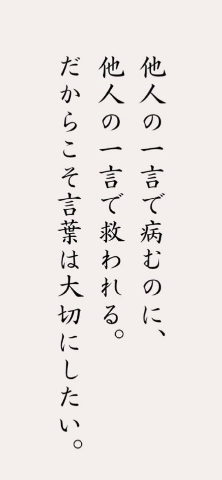 他人の一言で病むのに、
他人の一言で救われる。
だからこそ言葉は大切にしたい。